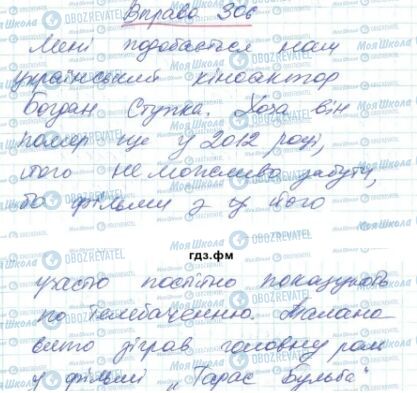 Вправа 306
Мені подобається наш
український кіноактор
Богдан Ступка. Хоча він
помер ще у 2012 році,
його неможливо забути,
бо фільми з у його
гдз.фм
участю постійно показують
по телебаченню.
зіграв головну роль
у фільмі „Тарас Бульба“